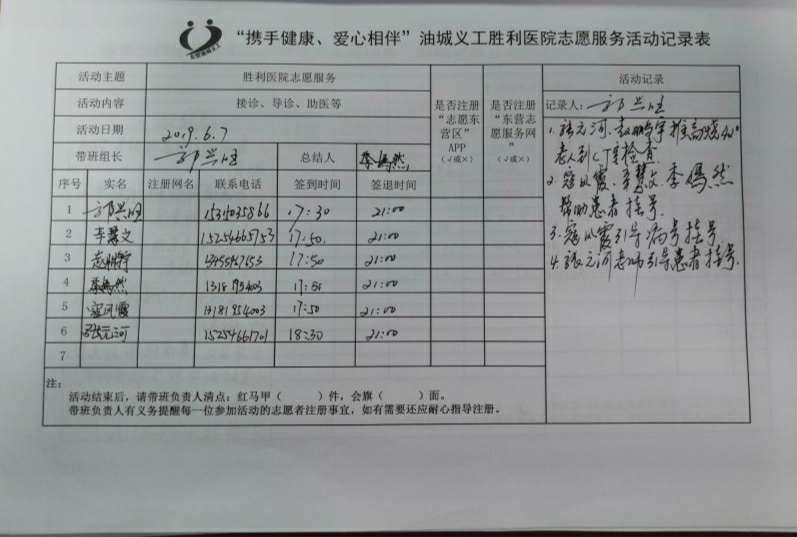 “携手健康、爱心相伴”油城义工胜利医院志愿服务活动记录表
活动主题 胜利医院志愿服务
活动内容 接诊、导诊、助医等
活动日期 2019.6.7
带班组长 总结人 李嫣然
是否注册“志愿东营区”APP（√或×）
是否注册“东营志愿服务网”（√或×）
序号 实名 注册网名 联系电话 签到时间 签退时间
1 17:30 21:00
2 李慧文 15254665753 17:50 21:00
3 17:50 21:00
4 李嫣然 17:50 21:00
5 寇凤霞 17:50 21:00
6 张元河 15254661701 18:30 21:00
7
注：
活动结束后，请带班负责人清点：红马甲（ ）件，会旗（ ）面。
带班负责人有义务提醒每一位参加活动的志愿者注册事宜，如有需要还应耐心指导注册。
活动记录
记录人：
1. 张元河、推高烧的
老人到CT室检查
2. 寇凤霞、李慧文、李嫣然
帮助患者挂号
3. 寇凤霞引导病号挂号
4. 张元河引导患者挂号.